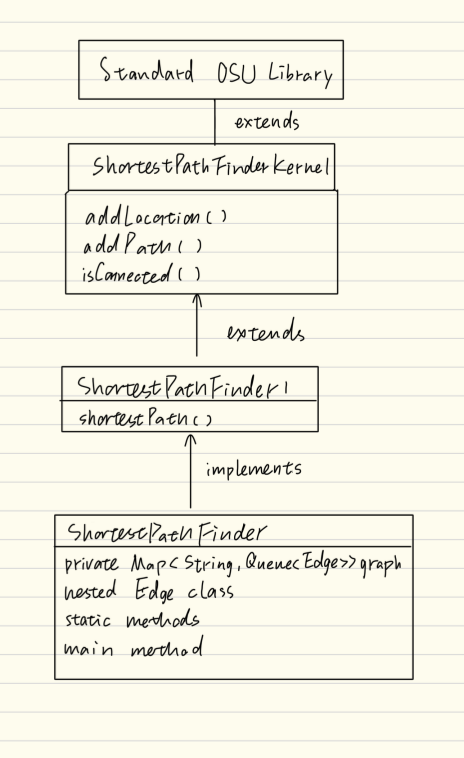 Standard OSU Library
extends
ShortestPathFinderKernel
addLocation()
addPath()
isConnected()
extends
ShortestPathFinder1
shortestPath()
implements
ShortestPathFinder
private Map<String, Queue<Edge>> graph
nested Edge class
static methods
main method